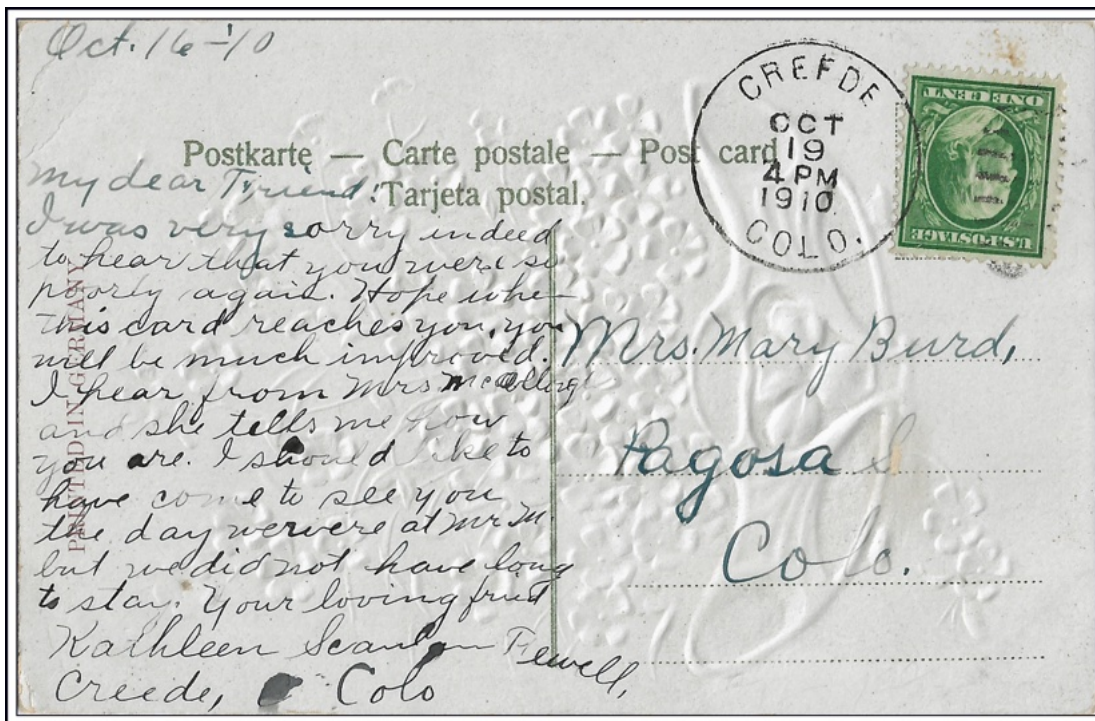 Oct. 16-'10
Postkarte — Carte postale — Post card
Tarjeta postal.
CREEDE
OCT
19
4 PM
1910
COLO.
ONE CENT
U.S.POSTAGE
PRINTED IN GERMANY
My dear Friend:
I was very sorry indeed
to hear that you were so
poorly again. Hope whe
this card reaches you, you
will be much improved.
I hear from Mrs
and she tells me how
you are. I should like to
have come to see you
the day we were at Mr. M
but we did not have long
to stay. Your loving frind
Kathleen Scanlon Fewell,
Creede, Colo
Mrs. Mary Burd,
Pagosa S
Colo.